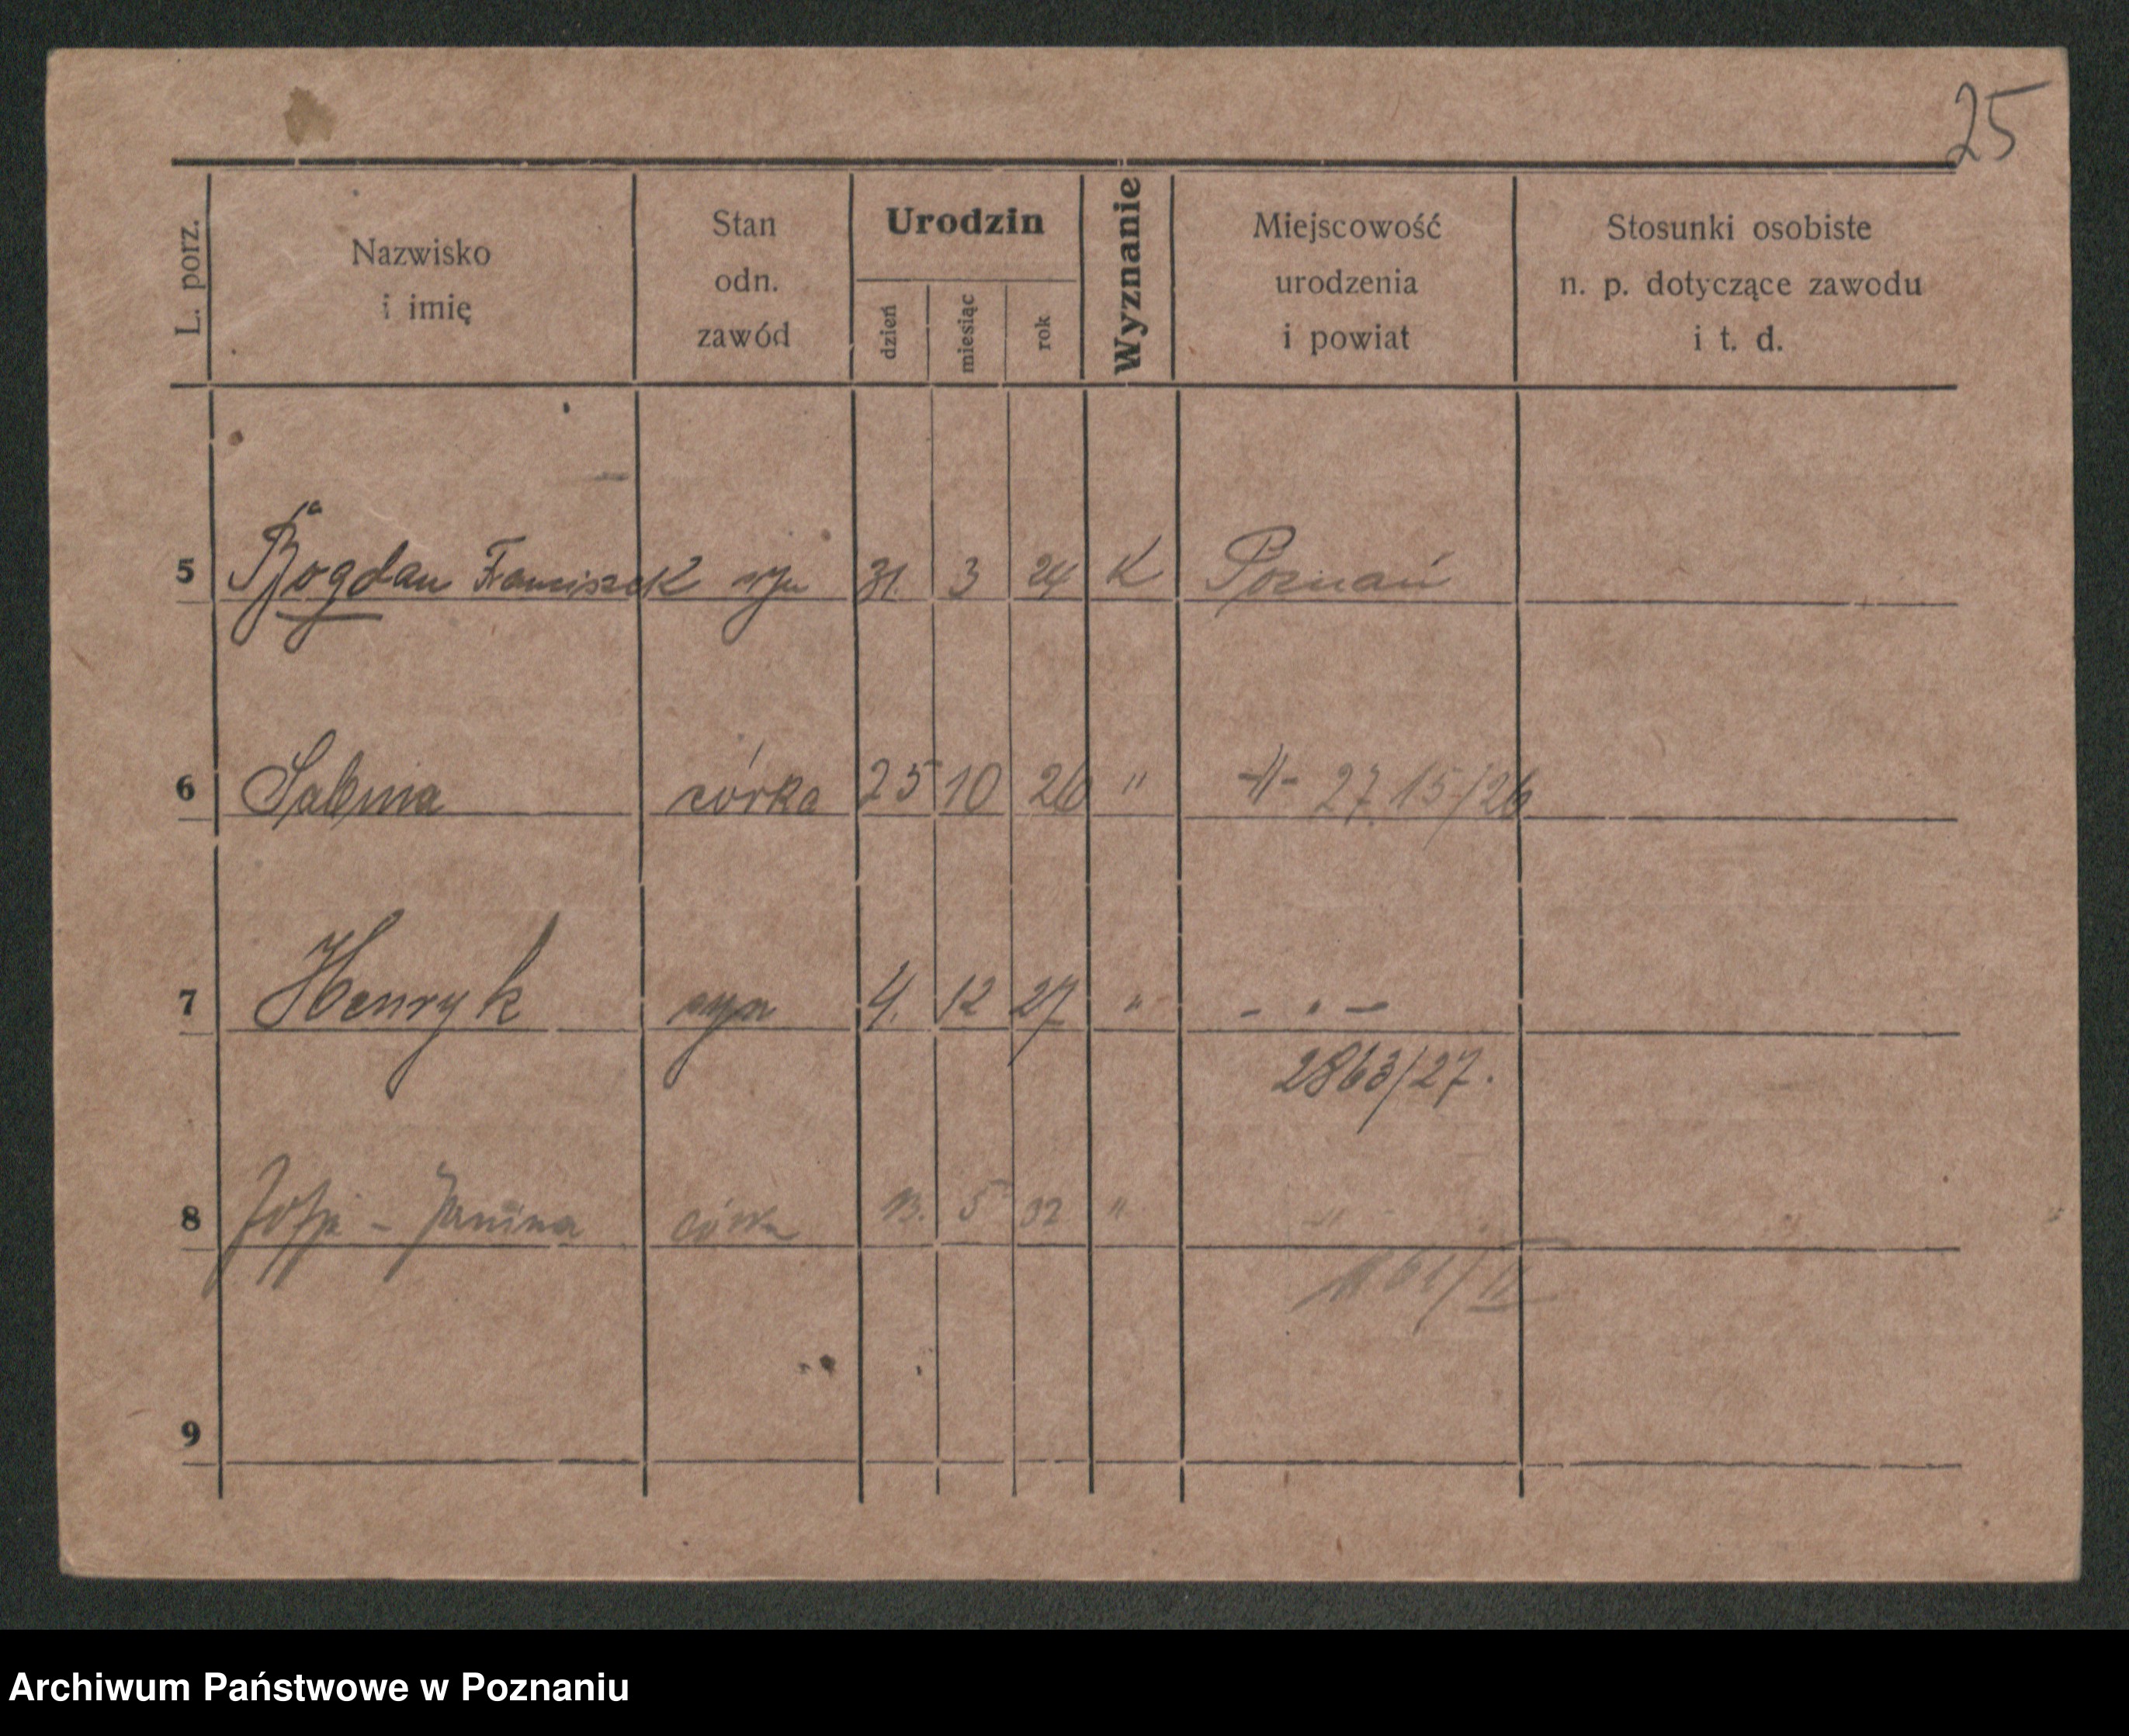 25
L. porz.
Nazwisko
i imię
Stan
odn.
zawód
Urodzin
dzień
miesiąc
rok
Wyznanie
Miejscowość
urodzenia
i powiat
Stosunki osobiste
n. p. dotyczące zawodu
i t. d.
5 Bogdan Franciszek syn 31. 3 24 K Poznań
6 Salomea córka 25 10 26 " -"- 2715/26
7 Henryk syn 4. 12 27 " - " -
2863/27.
8 Zofja - Janina córka 13. 5 32 " "
1161/II
9
Archiwum Państwowe w Poznaniu